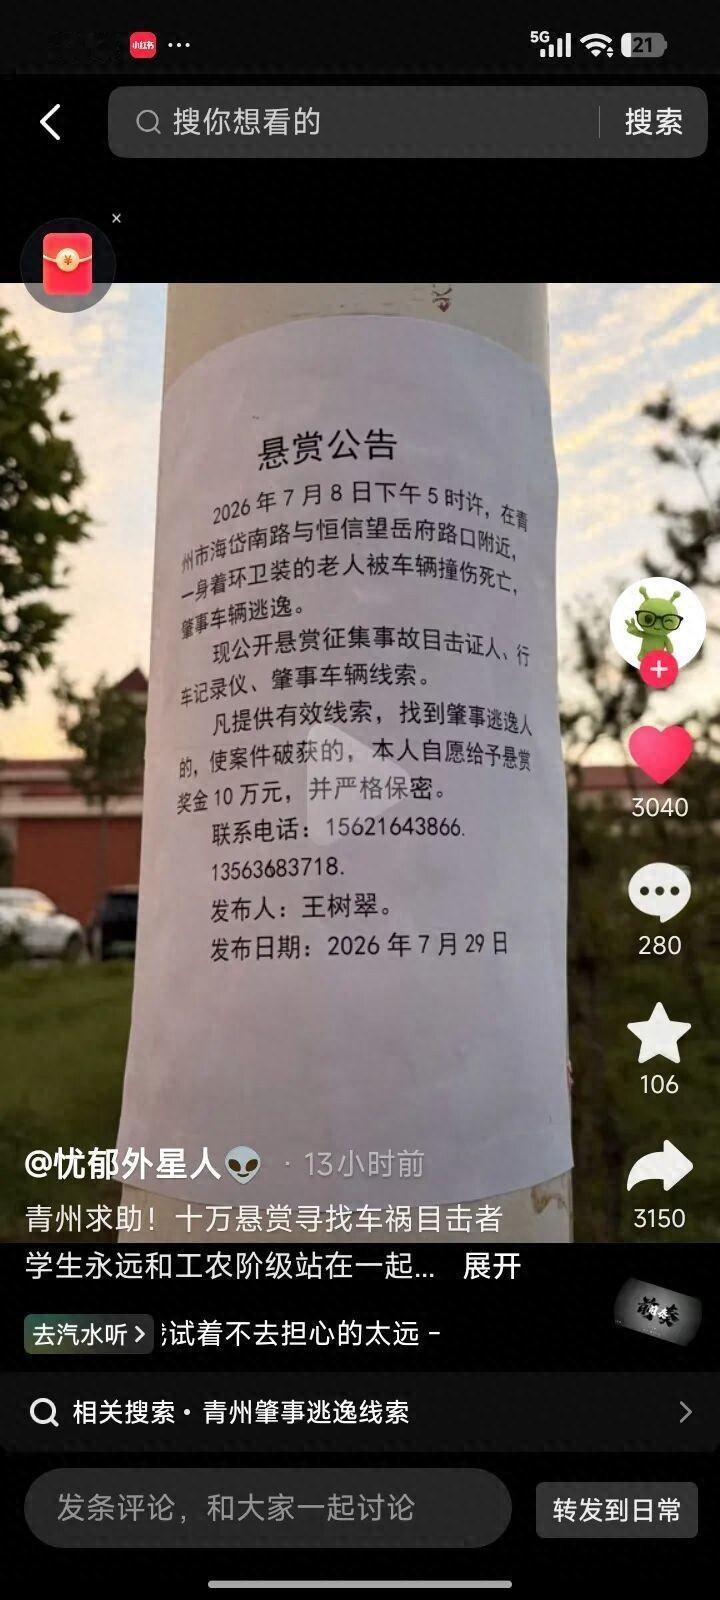 小红书
5G
21
搜你想看的
搜索
悬赏公告
2026年7月8日下午5时许，在青
州市海岱南路与恒信望岳府路口附近，
一身着环卫装的老人被车辆撞伤死亡，
肇事车辆逃逸。
现公开悬赏征集事故目击证人、行
车记录仪、肇事车辆线索。
凡提供有效线索，找到肇事逃逸人
的，使案件破获的，本人自愿给予悬赏
奖金10万元，并严格保密。
联系电话：15621643866.
13563683718.
发布人：王树翠。
发布日期：2026年7月29日
3040
280
106
3150
@忧郁外星人👽 · 13小时前
青州求助！十万悬赏寻找车祸目击者
学生永远和工农阶级站在一起... 展开
去汽水听 试着不去担心的太远 -
相关搜索·青州肇事逃逸线索
发条评论，和大家一起讨论
转发到日常